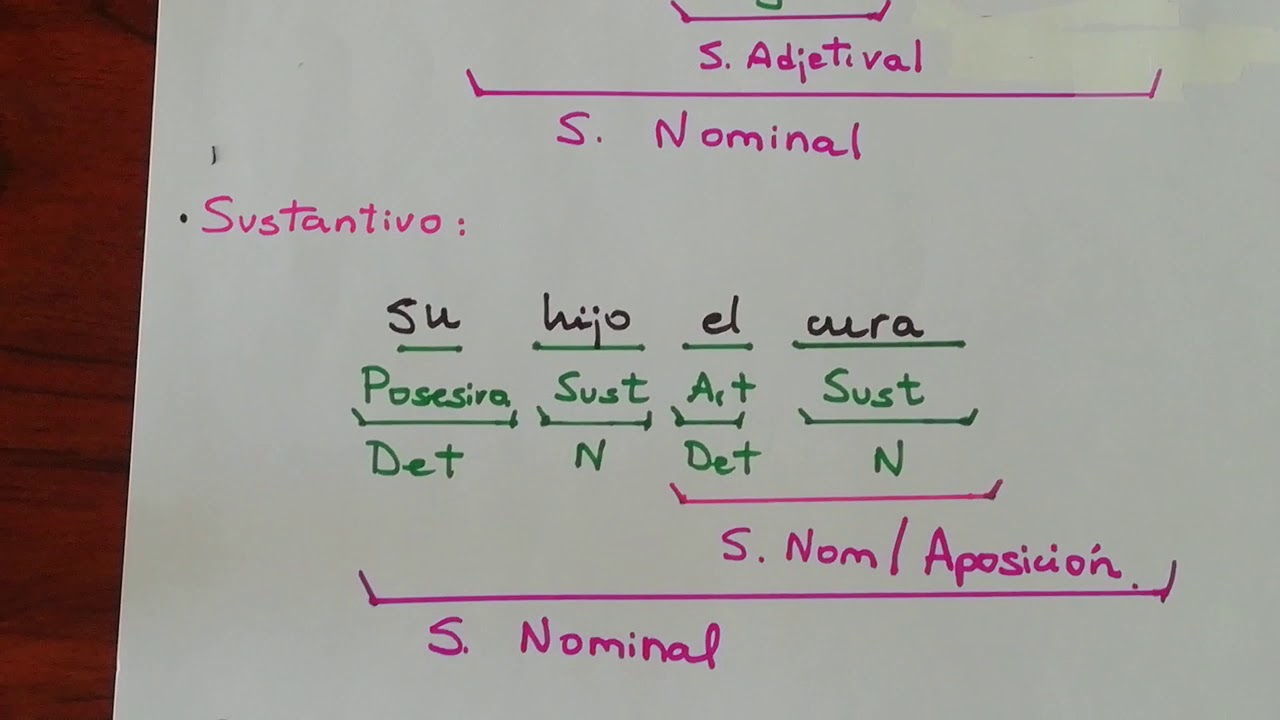 S. Adjetival
S. Nominal
· Sustantivo:
su hijo el cura
Posesivo Sust Art Sust
Det N Det N
S. Nom/Aposición.
S. Nominal